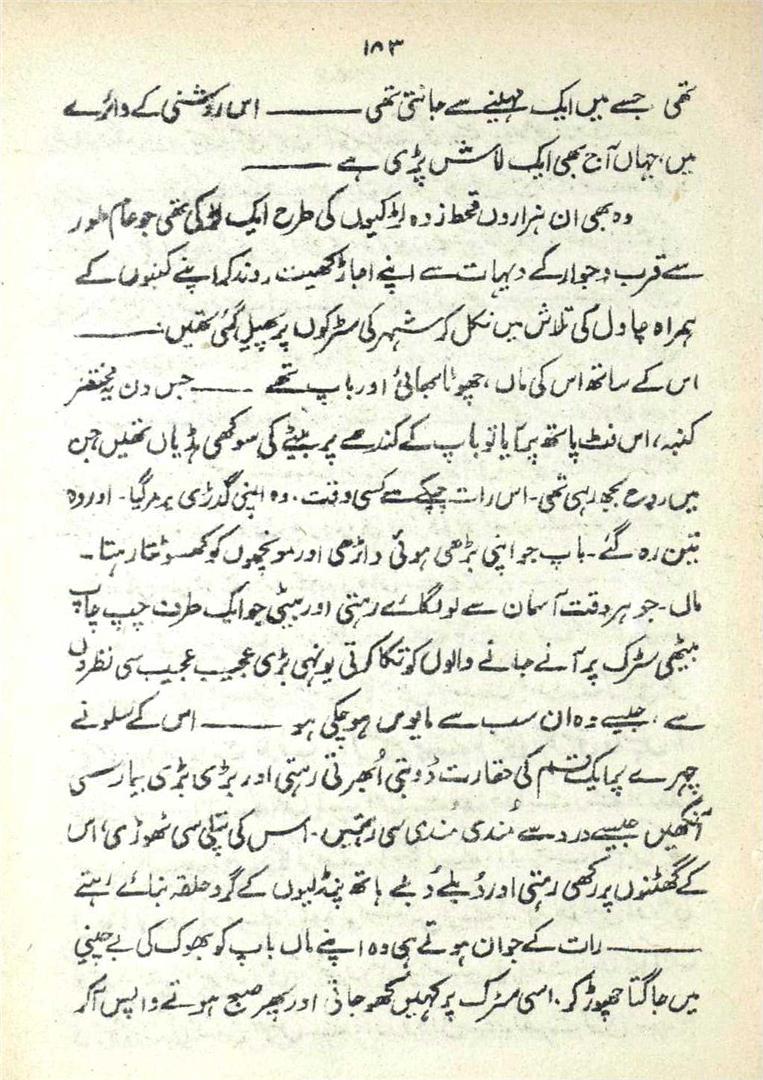 ۱۸۳
تھی جسے میں ایک مہینے سے جانتی تھی ——— اس روشنی کے دائرے
میں، جہاں آج بھی ایک لاش پڑی ہے ———
وہ بھی ان ہزاروں قحط زدہ لڑکیوں کی طرح ایک لڑکی تھی جو عام طور
سے قرب و جوار کے دیہات سے اپنے اجاڑ کھیت روند کر اپنے کنبوں کے
ہمراہ چاول کی تلاش میں نکل کر شہر کی سڑکوں پر پھیل گئی تھیں ———
اس کے ساتھ اس کی ماں، چھوٹا بھائی اور باپ تھے ——— جس دن یہ مختصر
کنبہ، اس فٹ پاتھ پر آیا تو باپ کے کندھے پر بیٹے کی سوکھی ہڈیاں تھیں جن
میں روح بجھ رہی تھی۔ اس رات چپکے سے کسی وقت۔ وہ اپنی گدڑی پر مر گیا۔ اور وہ
تین رہ گئے۔ باپ جو اپنی بڑھی ہوئی داڑھی اور مونچھوں کو کھسوٹتا رہتا۔
ماں۔ جو ہر وقت آسمان سے لو لگائے رہتی اور بیٹی جو ایک طرف چپ چاپ
بیٹھی سڑک پر آنے جانے والوں کو تکا کرتی یونہی بڑی عجیب عجیب سی نظروں
سے، جیسے وہ ان سب سے مایوس ہو چکی ہو ——— اس کے سلونے
چہرے پر ایک قسم کی حقارت ڈوبتی اُبھرتی رہتی اور بڑی بڑی بیمار سی
آنکھیں جیسے درد سے مُندی مُندی سی رہتیں۔ اس کی پتلی سی ٹھوڑی، اس
کے گھٹنوں پر رکھی رہتی اور دُبلے دُبلے ہاتھ پنڈلیوں کے گرد حلقہ بنائے رہتے
——— رات کے جوان ہوتے ہی وہ اپنے ماں باپ کو بھوک کی بے چینی
میں جاگتا چھوڑ کر، اسی سڑک پر کہیں کھو جاتی اور پھر صبح ہوتے واپس آ کر